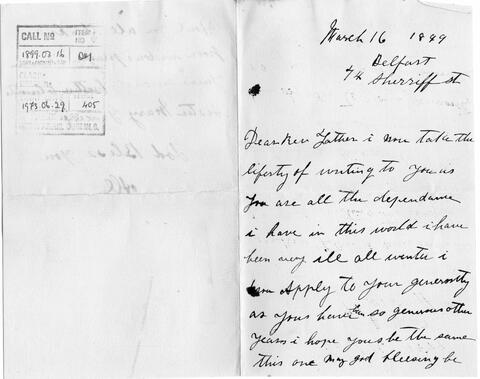 CALL NO
ITEM NO
1899.03.16
041
1973.06.29
405
March 16 1899
Belfast
74 Sherriff St
Dear Rev Father i now take the
liberty of writing to you as
you are all the dependance
i have in this world i have
been very ill all winter i
Apply to your generosity
as yous have been so generous other
years i hope yous be the same
this one may god bleesing be